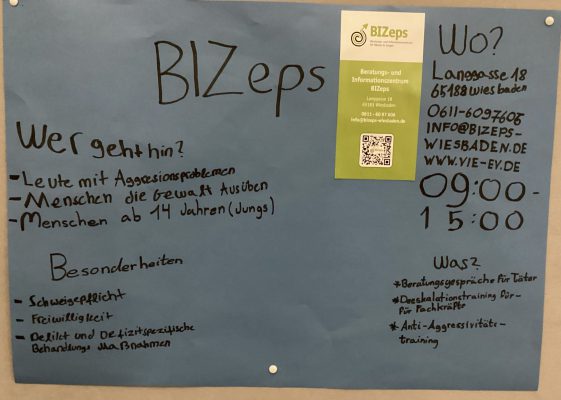 BIZeps
Wer geht hin?
- Leute mit Aggresionsproblemen
- Menschen die Gewalt Ausüben
- Menschen ab 14 Jahren (Jungs)
Besonderheiten
- Schweigepflicht
- Freiwilligkeit
- Delikt und Defizitspezifische
Behandlungs Maßnahmen
BIZeps
Beratungs- und
Informationszentrum
BIZeps
Langgasse 18
65183 Wiesbaden
info@bizeps-wiesbaden.de
Wo?
Langgasse 18
65183 Wiesbaden
0611-6097605
INFO@BIZEPS-
WIESBADEN.DE
WWW.VIE-EV.DE
09:00-
15:00
Was?
*Beratungsgespräche für Täter
*Deeskalationstraining für-
für Fachkräfte
*Anti-Aggressivitäts-
training